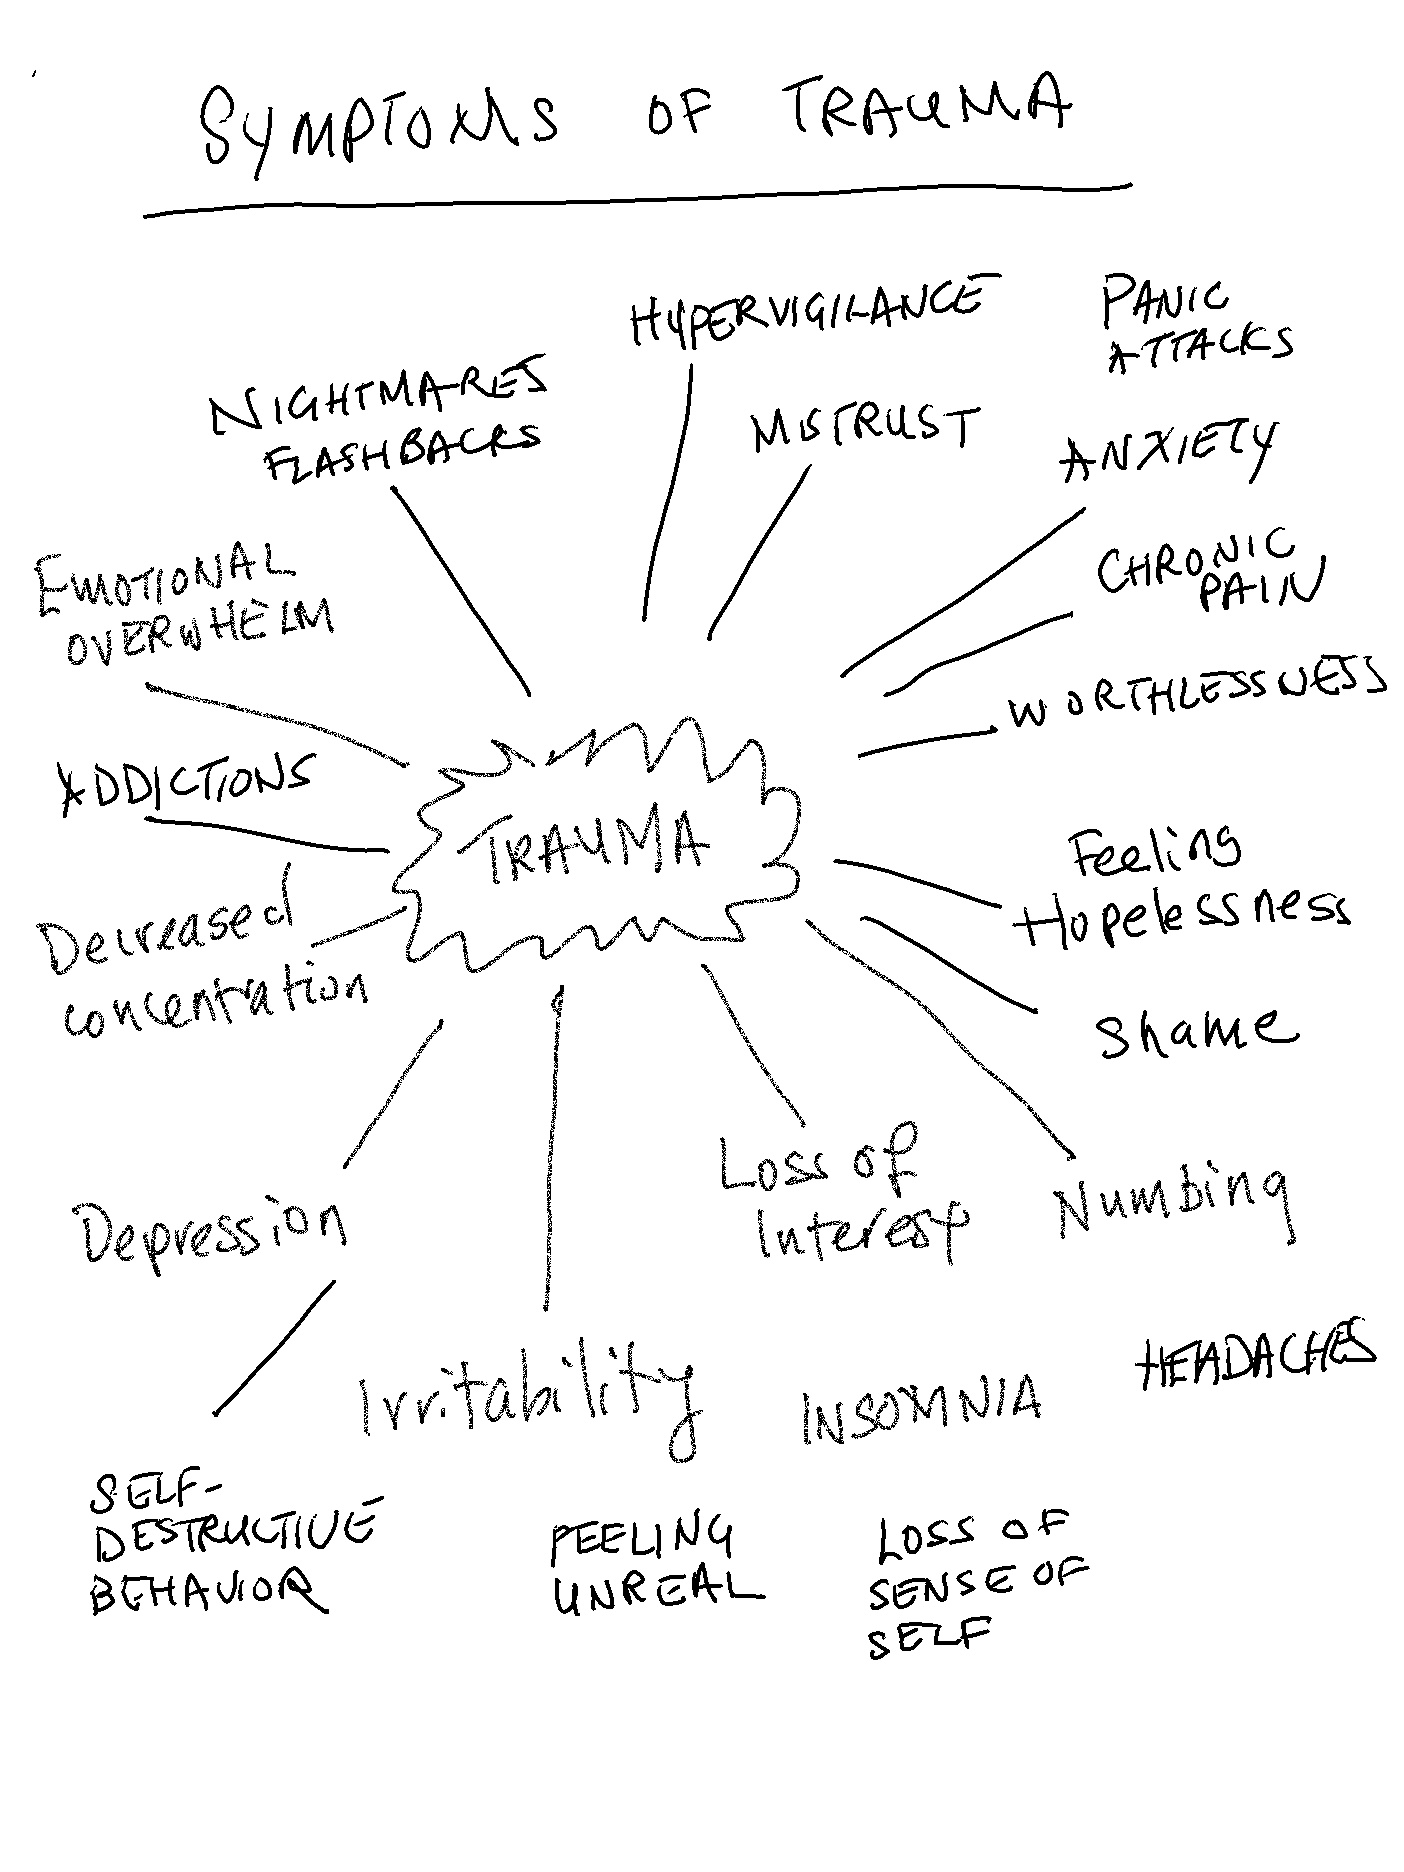 SYMPTOMS OF TRAUMA
HYPERVIGILANCE
PANIC
ATTACKS
NIGHTMARES
FLASHBACKS
MISTRUST
ANXIETY
EMOTIONAL
OVERWHELM
CHRONIC
PAIN
WORTHLESSNESS
ADDICTIONS
TRAUMA
Feeling
Hopelessness
Decreased
concentration
Shame
Depression
Loss of
Interest
Numbing
Irritability
INSOMNIA
HEADACHES
SELF-
DESTRUCTIVE
BEHAVIOR
FEELING
UNREAL
LOSS OF
SENSE OF
SELF